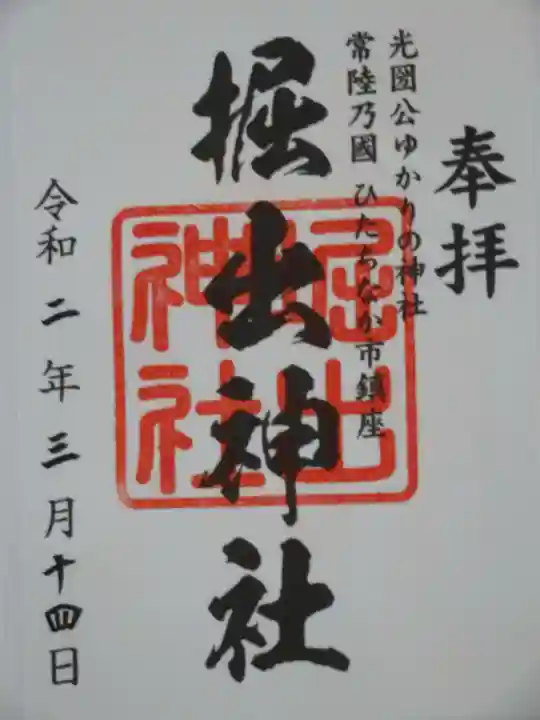 奉拝
光圀公ゆかりの神社
常陸乃國 ひたちなか市鎮座
掘出神社
掘出
神社
令和二年三月十四日